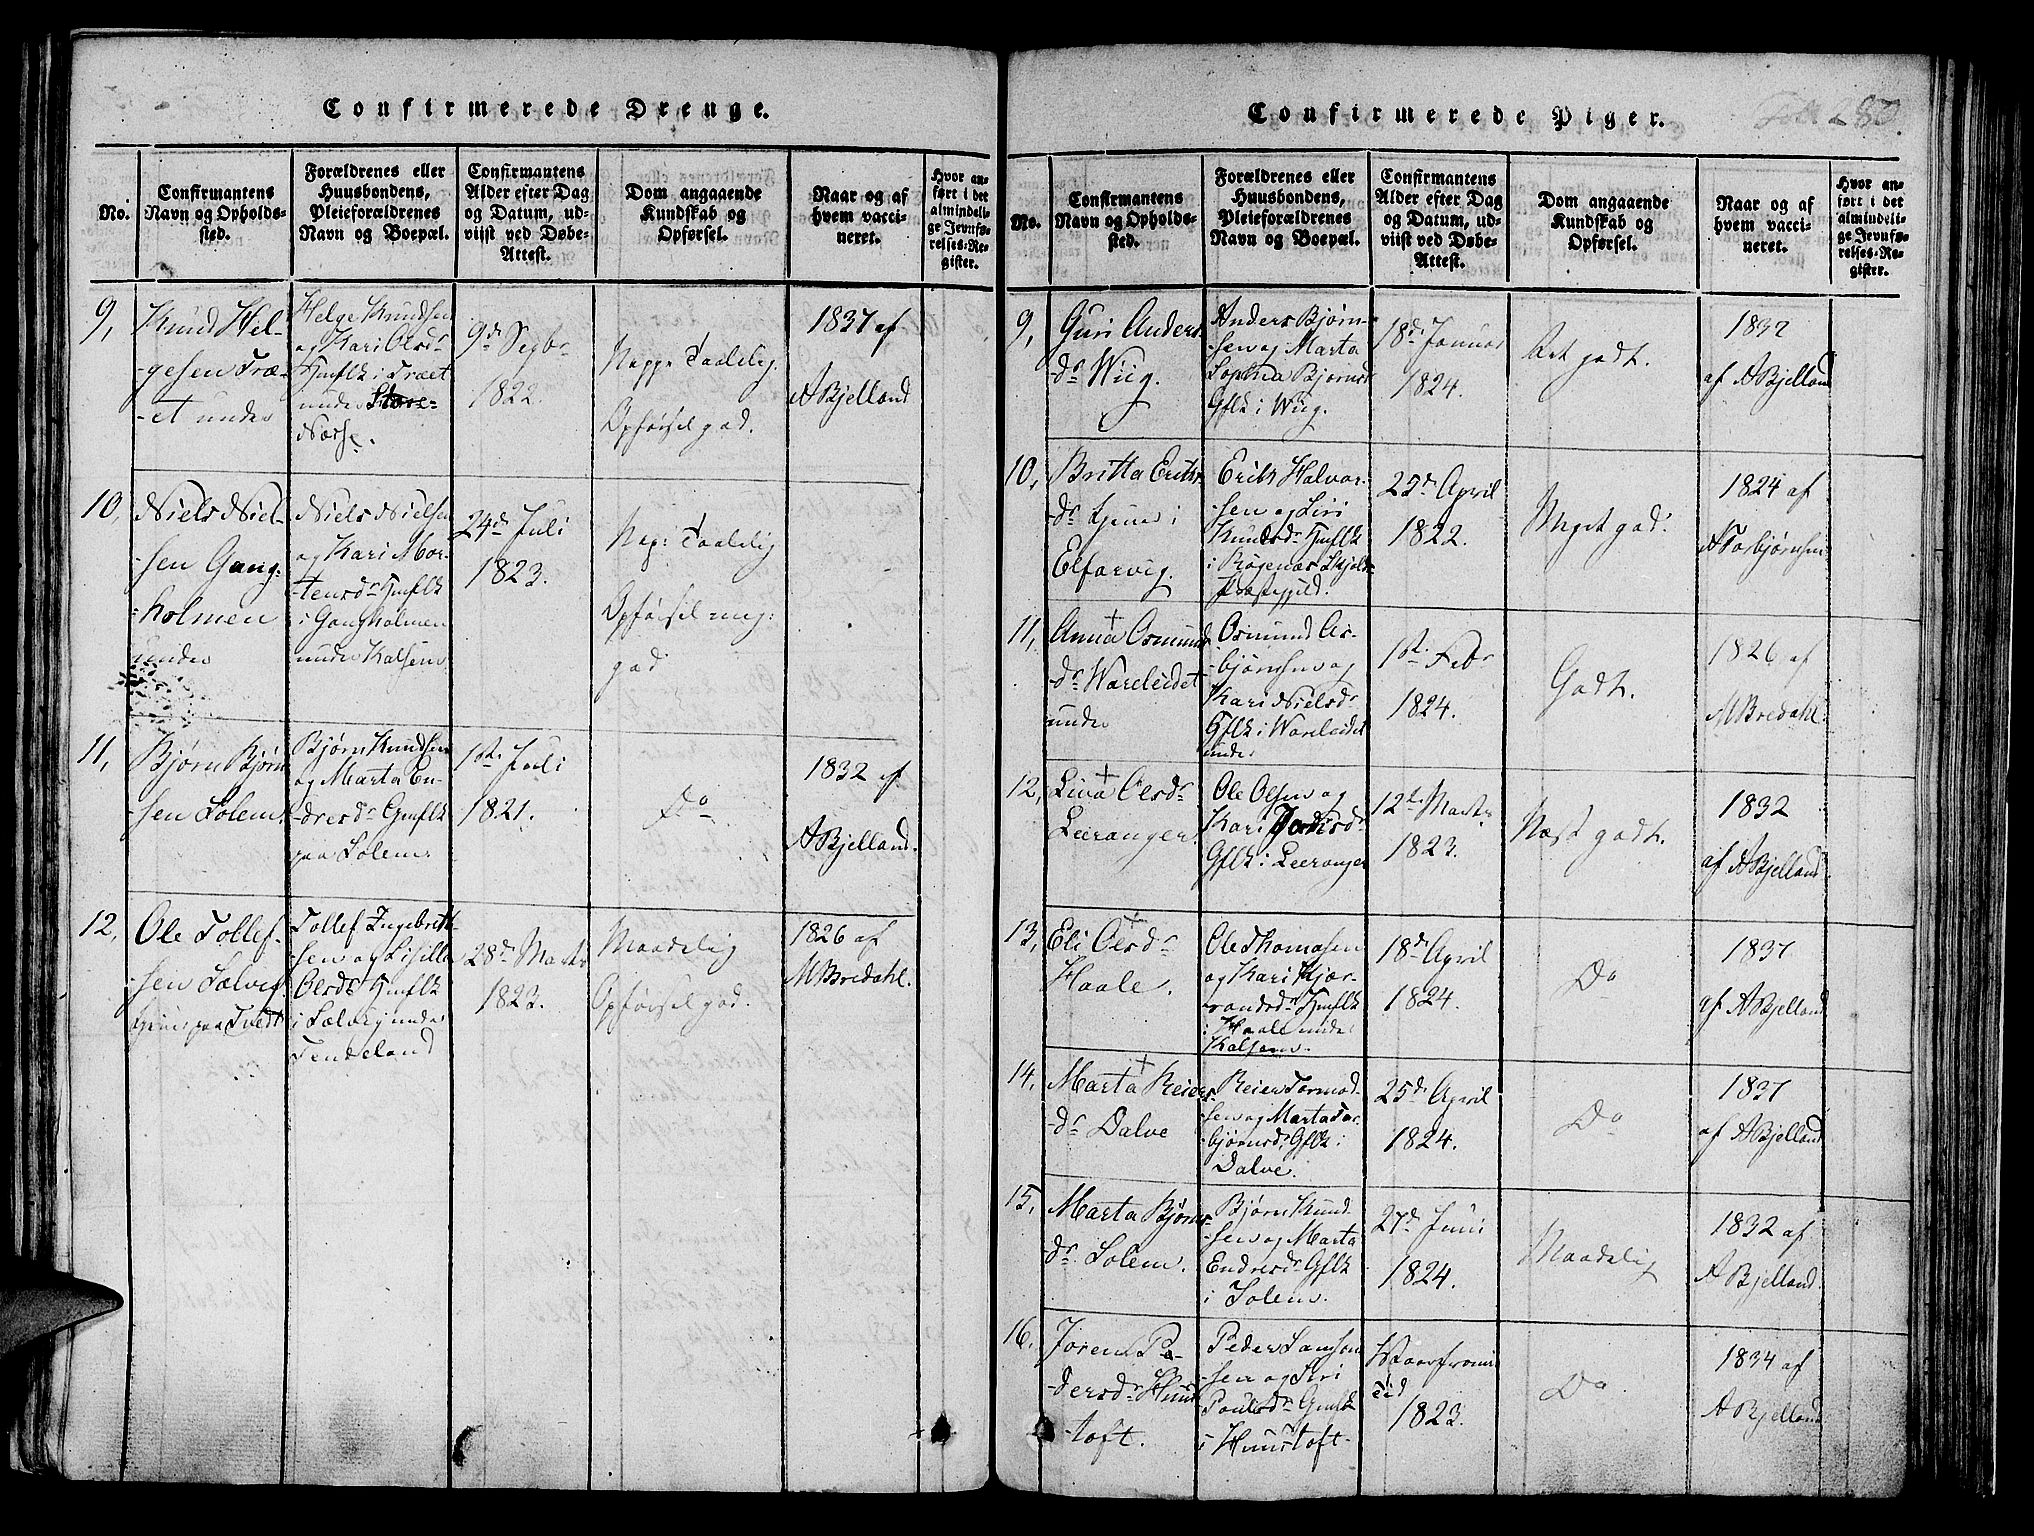 Confirmerede Drenge.
No.
Confirmantens
Navn og Opholds-
sted.
Forældrenes eller
Huusbondens,
Pleieforældrenes
Navn og Boepæl.
Confirmantens
Alder efter Dag
og Datum, ud-
viist ved Døbe-
Attest.
Dom angaaende
Kundskab og
Opførsel.
Naar og af
hvem vacci-
neret.
Hvor an-
ført i det
almindeli-
ge Jevnfø-
relses-Re-
gister.
9,
Knud Hel-
gesen Træ-
-et under
Helge Knudsen
og Kari Olsdr
Hmflk i Træet
under
Norse.
9de Sepbr
1822.
Nappe Taalelig.
Opførsel god.
1837 af
A Bjelland
10,
Niels Niel-
-sen Gang-
-holmen
under
Niels Nielsen
og Kari Mor-
-tensdr Hmflk
i Gangholmen
under Kalsem
24de Juli
1823.
Nap: Taalelig
Opførsel meg:
god
11,
Bjørn Bjørn
-sen Solem.
Bjørn Knudsen
og Marta En-
-dresdr Gmflk
paa Solem.
1ste Juli
1821.
Do
1832 af
A Bjelland.
12,
Ole Tollef-
-sen Sælvig.
tjener paa Tvedt
Tollef Ingebrikt-
-sen og Lisilla
Olsdr Hmflk
i Sælvig under
Tendeland
28de Marts
1823.
Maadelig
Opførsel god.
1826 af
M Bredahl.
Confirmerede Piger.
280.
No.
Confirmantens
Navn og Opholds-
sted.
Forældrenes eller
Huusbondens,
Pleieforældrenes
Navn og Boepæl.
Confirmantens
Alder efter Dag
og Datum, ud-
viist ved Døbe-
Attest.
Dom angaaende
Kundskab og
Opførsel.
Naar og af
hvem vacci-
neret.
Hvor an-
ført i det
almindeli-
ge Jevnfø-
relses-Re-
gister.
9,
Guri Anders
-dr Wiig.
Anders Bjørn-
-sen og Marta
Sophia Bjørnsd
Gflk i Wiig.
18de Januar
1824.
godt.
1837
af A Bjelland
10,
Britta Eriks
-dr tjener i
Elfarvig.
Erik Halvor-
-sen og Siri
Knudsdr Hmflk
i Røgenæs Skjold
Præstegjeld.
1822.
Meget god.
1824 af
A Torbjørnsen
11,
Anna Osmunds
-dr Wareleidet
under
Osmund As-
-bjørnsen og
Kari Nielsdr
Gflk i Wareleidet
under
1ste Febr
1824.
Godt.
1826 af
M Bredahl.
12,
Olsdr
Leeranger.
Ole Olsen og
Kari
Gflk i Leeranger
12te Marts
1823.
Næst godt.
1832
af A Bjelland.
13,
Eli Olsdr
Haale.
Ole Thomasen
og Kari Kjær-
-vandsdr Hmflk
i Haale under
Kalsem.
18de April
1824.
Do
1837
af A Bjelland
14,
Marta Reiers
-dr Dalve
Reier Tormod
-sen og Marta Tor
-bjørnsdr Gflk i
Dalve.
25de April
1824.
Do
1837
af A Bjelland
15,
Marta Bjørns-
-dr Solem.
Bjørn Knud-
-sen og Marta
Endresdr Gflk
i Solem.
27de Juni
1824.
Maadelig
1832 af
A Bjelland.
16.
Joren Pe-
-dersdr Huus
-toft.
Peder Samson
-sen og Siri
Poulsdr Gmflk
i Huustoft.
Tid
1823.
Do
1834 af
A Bjelland